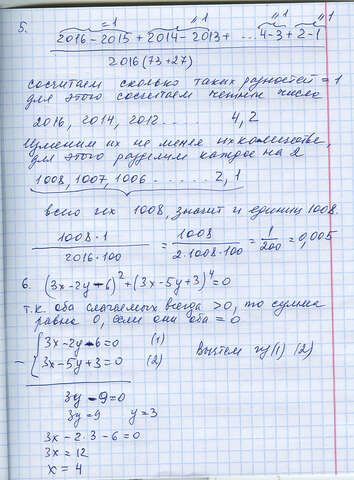 5. =1 =1 =1 =1
2016-2015+2014-2013+ ...4-3+2-1
2016(73+27)
сосчитаем сколько таких разностей =1
для этого сосчитаем четные числа
2016, 2014, 2012..... 4, 2
Изменим их не меняя их количества,
для этого разделим каждое на 2
1008, 1007, 1006 ...... 2, 1
всего их 1008, значит и единиц 1008.
1008·1 / 2016·100 = 1008 / 2·1008·100 = 1/200 = 0,005
6. (3x-2y-6)² + (3x-5y+3)⁴=0
т.к. оба слагаемых всегда >0, то сумма
равна 0, если они оба = 0
3x-2y-6=0 (1)
3x-5y+3=0 (2) Вычтем из (1) (2)
3y-9=0
3y=9 y=3
3x-2·3-6=0
3x=12
x=4